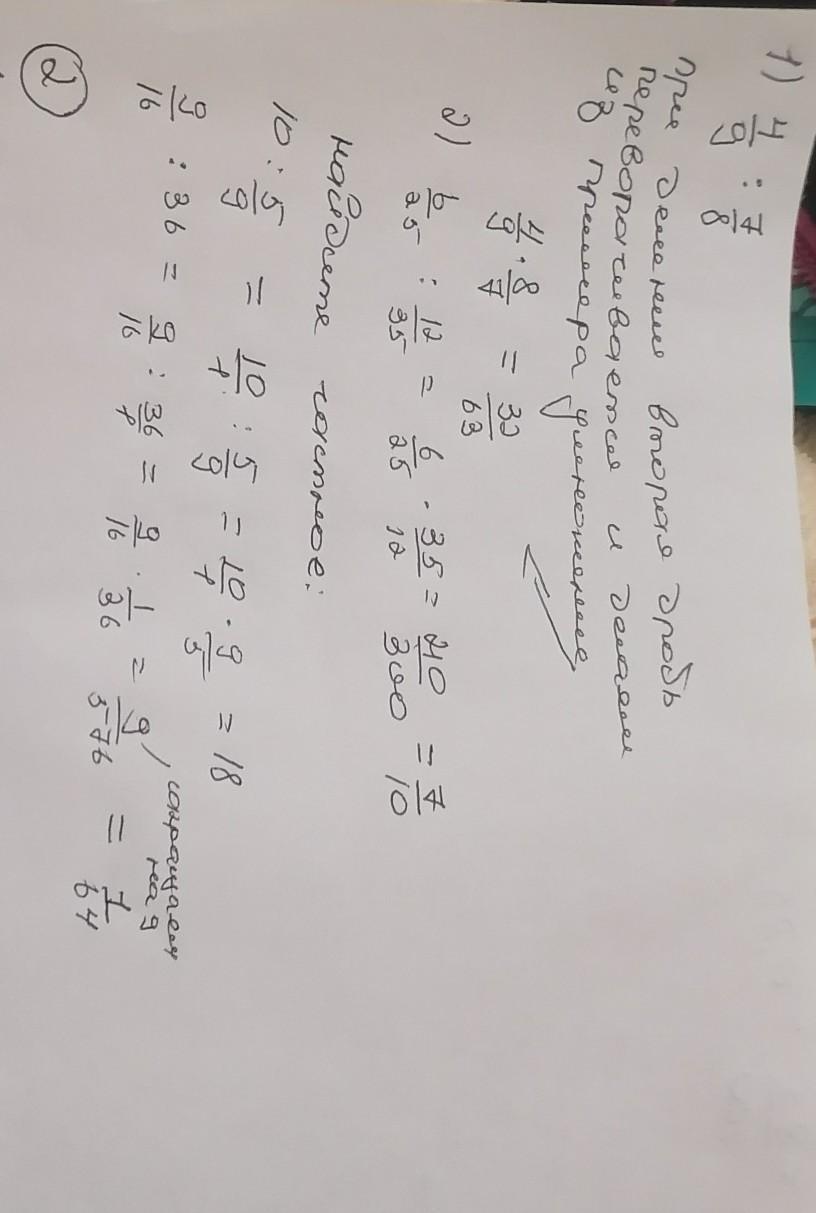 1) 4/9 : 7/8
При делении вторая дробь
переворачивается и делаем
из примера умножение
4/9 · 8/7 = 32/63
2) 6/25 : 12/35 = 6/25 · 35/12 = 210/300 = 7/10
найдите частное:
10 : 5/9 = 10/1 : 5/9 = 10/1 · 9/5 = 18
9/16 : 36 = 9/16 : 36/1 = 9/16 · 1/36 = 9/576, сокращаем на 9 = 1/64
2